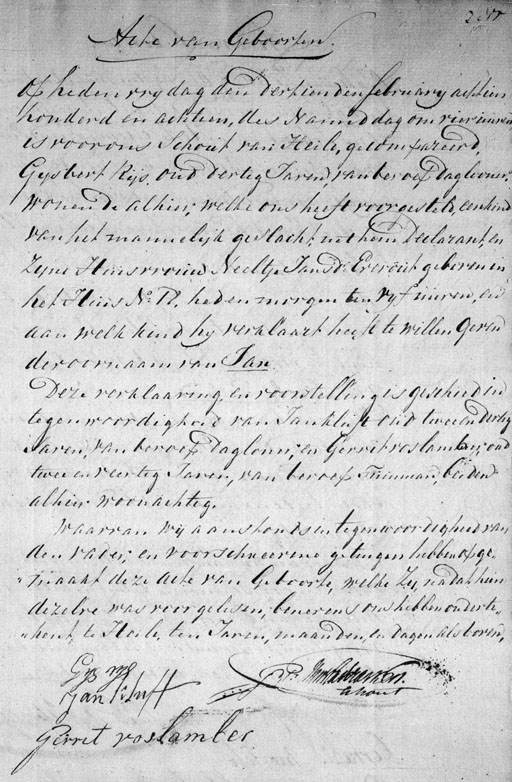 Acte van Geboorten.
Op heden vrydag den dertienden february achtien
honderd en achtien, des Namiddag om vier uuren
is voor ons Schout van Heile, gecompareerd,
Gysbert Rijs, oud dertig Jaren, van beroep dagloner,
wonende alhier, welke ons heeft voorgesteld, een kind
van het mannelijk geslacht, uit hem Declarant, en
Zyne Huisvrouw Neeltje Jansd. geboren in
het Huis No. heden morgen ten vyf uuren, en
aan welk kind hy verklaart heeft te willen geven
de voornaam van Jan
Deze verklaaring en voorstelling is geschied in
tegenwoordigheid van Jan Kluft oud twee en dertig
Jaren, van beroep dagloner, en Gerrit roslamber, oud
twee en veertig Jaren, van beroep Tuinman, beiden
alhier woonachtig.
Waarvan wij aanstonds in tegenwoordigheid van
den vader, en voorschreevene getuigen hebben opge-
maakt deze Acte van Geboorte, welke Zy, na dat hun
dezelve was voorgelesen, benevens ons hebben onderte-
kent, te Heile, ten Jaren, maanden, en dagen als boven,
Gys rys
Jan Kluft
Schout
Gerret roslamber